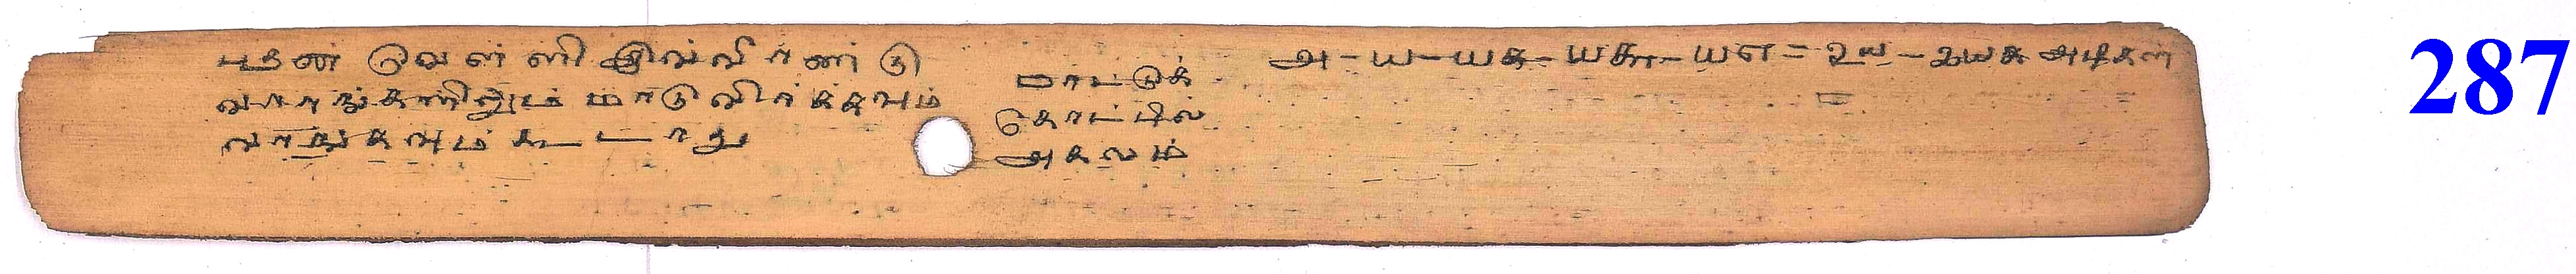 புதன் வெள்ளி இவ்விரண்டு
வாரங்களிலும் மாடுவிர்க்கவும்
வாங்கவும் கூடாது
மாட்டுக்
கொட்டில்
அகலம்
அ - ய - யக - யசு - யஎ - உய - உயக அடிகள்
287